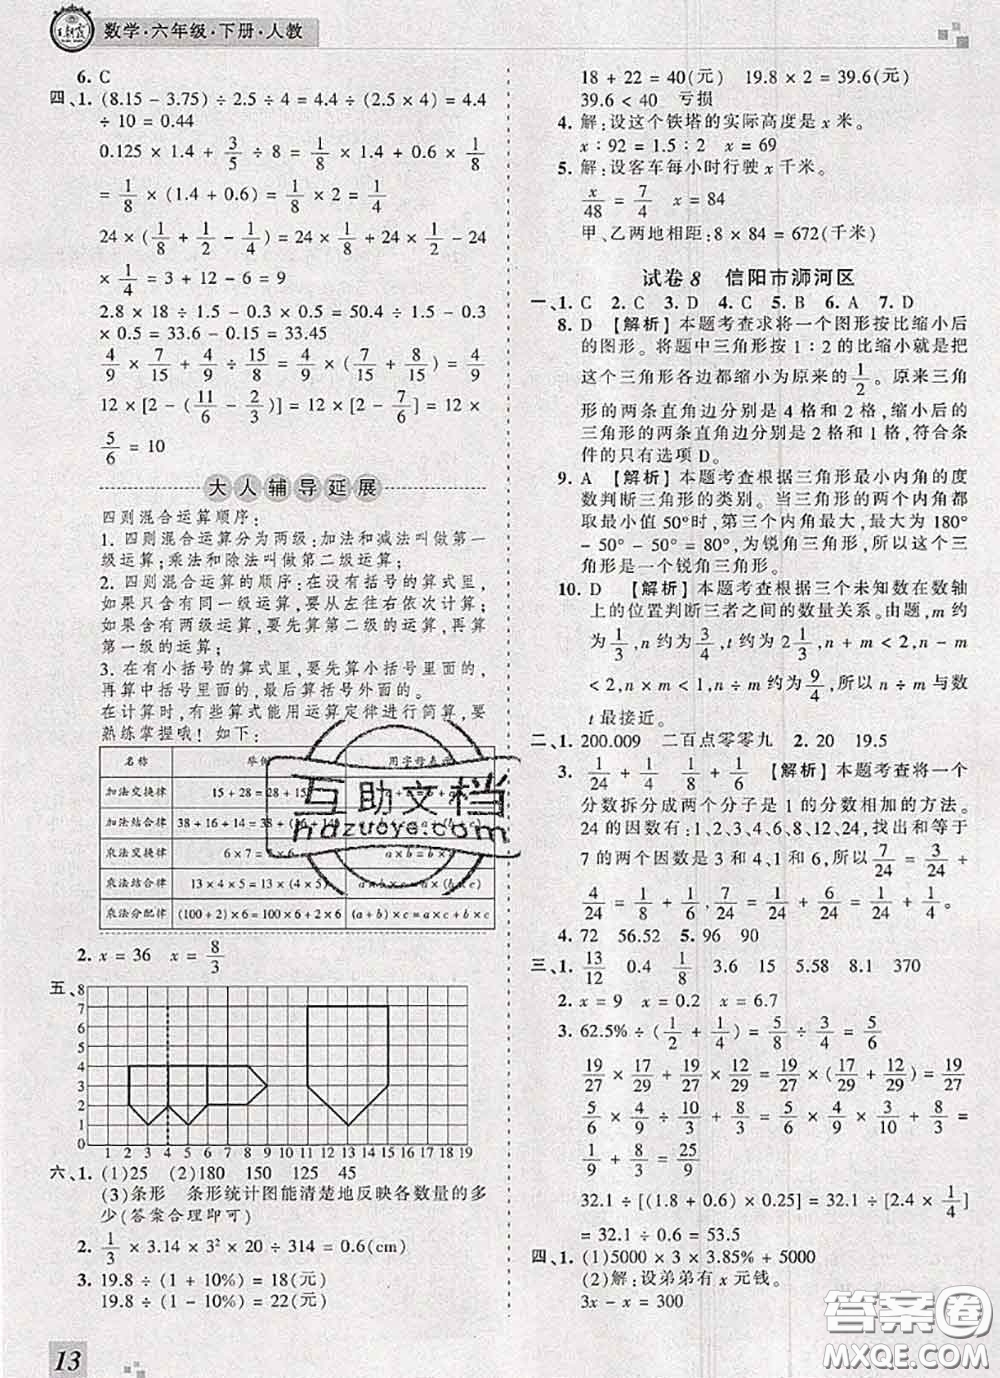 数学·六年级·下册·人教
6. C
四、1. (8.15 − 3.75) ÷ 2.5 ÷ 4 = 4.4 ÷ (2.5 × 4) = 4.4
÷ 10 = 0.44
0.125 × 1.4 + 3/5 ÷ 8 = 1/8 × 1.4 + 0.6 × 1/8
= 1/8 × (1.4 + 0.6) = 1/8 × 2 = 1/4
24 × (1/8 + 1/2 − 1/4) = 24 × 1/8 + 24 × 1/2 − 24
× 1/4 = 3 + 12 − 6 = 9
2.8 × 18 ÷ 1.5 − 0.3 × 0.5 = 50.4 ÷ 1.5 − 0.3
× 0.5 = 33.6 − 0.15 = 33.45
4/9 × 7/15 + 4/9 ÷ 15/8 = 4/9 × (7/15 + 8/15) = 4/9
12 × [2 − (11/6 − 2/3)] = 12 × [2 − 7/6] = 12 ×
5/6 = 10
大人辅导延展
四则混合运算顺序:
1. 四则混合运算分为两级:加法和减法叫做第一
级运算;乘法和除法叫做第二级运算。
2. 四则混合运算的顺序:在没有括号的算式里,
如果只含有同一级运算,要从左往右依次计算;
如果含有两级运算,要先算第二级的运算,再算
第一级的运算;
3. 在有小括号的算式里,要先算小括号里面的,
再算中括号里面的,最后算括号外面的。
在计算时,有些算式能用运算定律进行简算,要
熟练掌握哦! 如下:
名称 举例 用字母表示
加法交换律 15 + 28 = 28 + 15
加法结合律 38 + 16 + 14 = 38 +
乘法交换律 6 × 7 = 7 × 6 a × b = b × a
乘法结合律 13 × 4 × 5 = 13 × (4 × 5) a × b × c = a × (b × c)
乘法分配律 (100 + 2) × 6 = 100 × 6 + 2 × 6 (a + b) × c = a × c + b × c
2. x = 36 x = 8/3
五、
8
7
6
5
4
3
2
1
0
1 2 3 4 5 6 7 8 9 10 11 12 13 14 15 16 17 18 19
六、1. (1)25 (2)180 150 125 45
(3)条形 条形统计图能清楚地反映各数量的多
少(答案合理即可)
2. 1/3 × 3.14 × 3² × 20 ÷ 314 = 0.6(cm)
3. 19.8 ÷ (1 + 10%) = 18(元)
19.8 ÷ (1 − 10%) = 22(元)
13
18 + 22 = 40(元) 19.8 × 2 = 39.6(元)
39.6 < 40 亏损
4. 解:设这个铁塔的实际高度是 x 米。
x : 92 = 1.5 : 2 x = 69
5. 解:设客车每小时行驶 x 千米。
x/48 = 7/4 x = 84
甲、乙两地相距:8 × 84 = 672(千米)
试卷 8 信阳市浉河区
一、1. C 2. C 3. D 4. C 5. B 6. A 7. D
8. D 【解析】本题考查求将一个图形按比缩小后
的图形。将题中三角形按 1 : 2 的比缩小就是把
这个三角形各边都缩小为原来的 1/2。原来三角
形的两条直角边分别是 4 格和 2 格,缩小后的三角
形的两条直角边分别是 2 格和 1 格,符合条
件的只有选项 D。
9. A 【解析】本题考查根据三角形最小内角的度
数判断三角形的类别。当三角形的两个内角都
取最小值 50°时,第三个内角最大,最大为 180°
− 50° − 50° = 80°,为锐角三角形,所以这个三角
形是一个锐角三角形。
10. D 【解析】本题考查根据三个未知数在数轴
上的位置判断三者之间的数量关系。由题,m 约
为 1/3,n 约为 3/4,t 约为 2 1/3,n + m < 2,n − m
< 2,n × m < 1,n ÷ m ≈ 9/4,所以 n ÷ m 与数
t 最接近。
二、1. 200.009 二百点零零九 2. 20 19.5
3. 1/24 + 1/4 1/8 + 1/6 【解析】本题考查将一个
分数拆分成两个分子是 1 的分数相加的方法。
24 的因数有:1、2、3、4、6、8、12、24,找出和等于
7 的两个因数是 3 和 4、1 和 6,所以 7/24 = 3/24 +
4/24 = 1/8 + 1/6, 7/24 = 1/24 + 6/24 = 1/24 + 1/4。
4. 72 56.52 5. 96 90
三、1. 13/12 0.4 1/8 3.6 15 5.58 8.1 370
2. x = 9 x = 0.2 x = 6.7
3. 62.5% ÷ (1/2 + 1/4) = 5/8 ÷ 3/4 = 5/6
19/27 × 17/29 + 19/27 × 12/29 = 19/27 × (17/29 + 12/29) = 19/27
5/6 × 4/9 ÷ 10/3 + 8/3 = 5/6 × 4/9 × 3/10 + 8/3 =
1/9 + 8/3 = 25/9
32.1 ÷ [(1.8 + 0.6) × 0.25] = 32.1 ÷ [2.4 × 1/4]
= 32.1 ÷ 0.6 = 53.5
四、1. (1)5000 × 3 × 3.85% + 5000
(2)解:设弟弟有 x 元钱。
3x − x = 300
互助文档
hdzuoye.com
答案圈
MXQE.COM